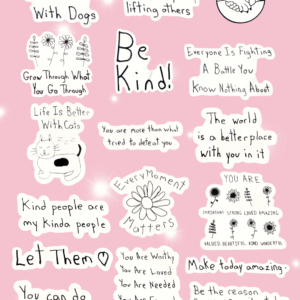 With Dogs
lifting others
Grow Through What
You Go Through
Be
Kind!
Everyone Is Fighting
A Battle You
Know Nothing About
Life Is Better
With Cats
You are more than what
tried to defeat you
The world
is a better place
with you in it
Kind people are
my Kinda people
Every Moment
Matters
YOU ARE
IMPORTANT STRONG LOVED AMAZING
VALUED BEAUTIFUL KIND WONDERFUL
Let Them
You Are Worthy
You Are Loved
You Are Needed
Make today amazing
You can do
Be the reason